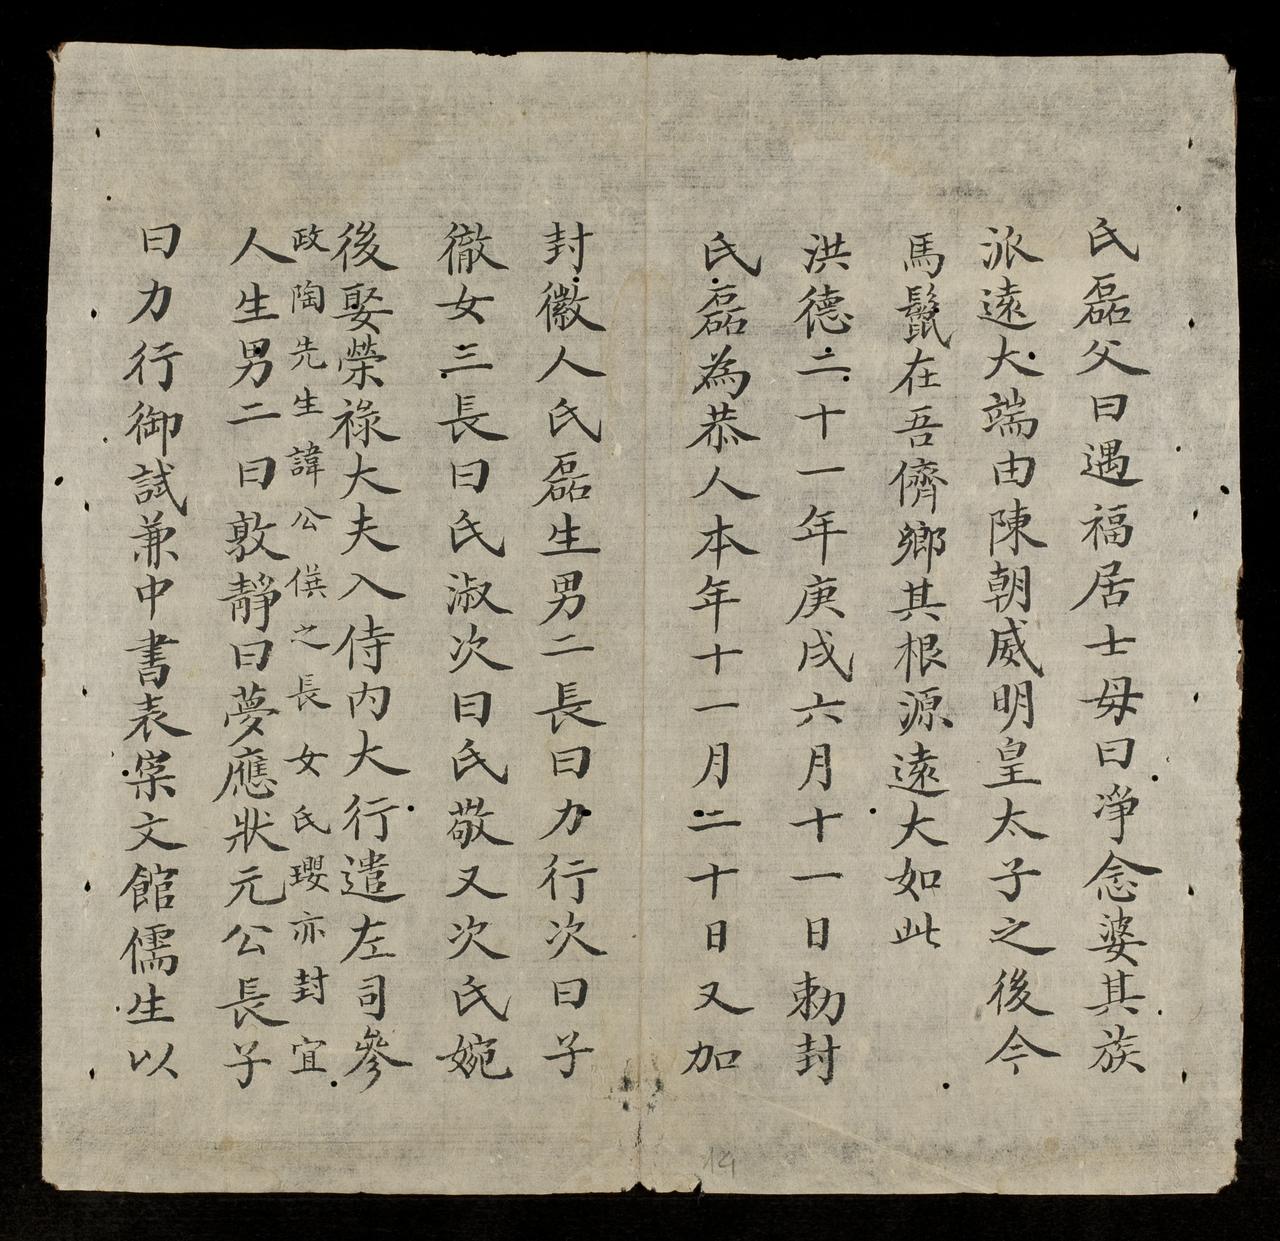 氏磊父曰遇福居士母曰淨念婆其族
派遠大端由陳朝威明皇太子之後今
馬鬛在吾儕鄉其根源遠大如此
洪德二十一年庚戌六月十一日勅封
氏磊為恭人本年十一月二十日又加
封徽人氏磊生男二長曰力行次曰子
徹女三長曰氏淑次曰氏敬又次氏婉
後娶榮祿大夫入侍內大行遣左司參
政陶先生諱公僎之長女氏瓔亦封宜
人生男二曰敦靜曰夢應狀元公長子
曰力行御試兼中書表案文館儒生以
19